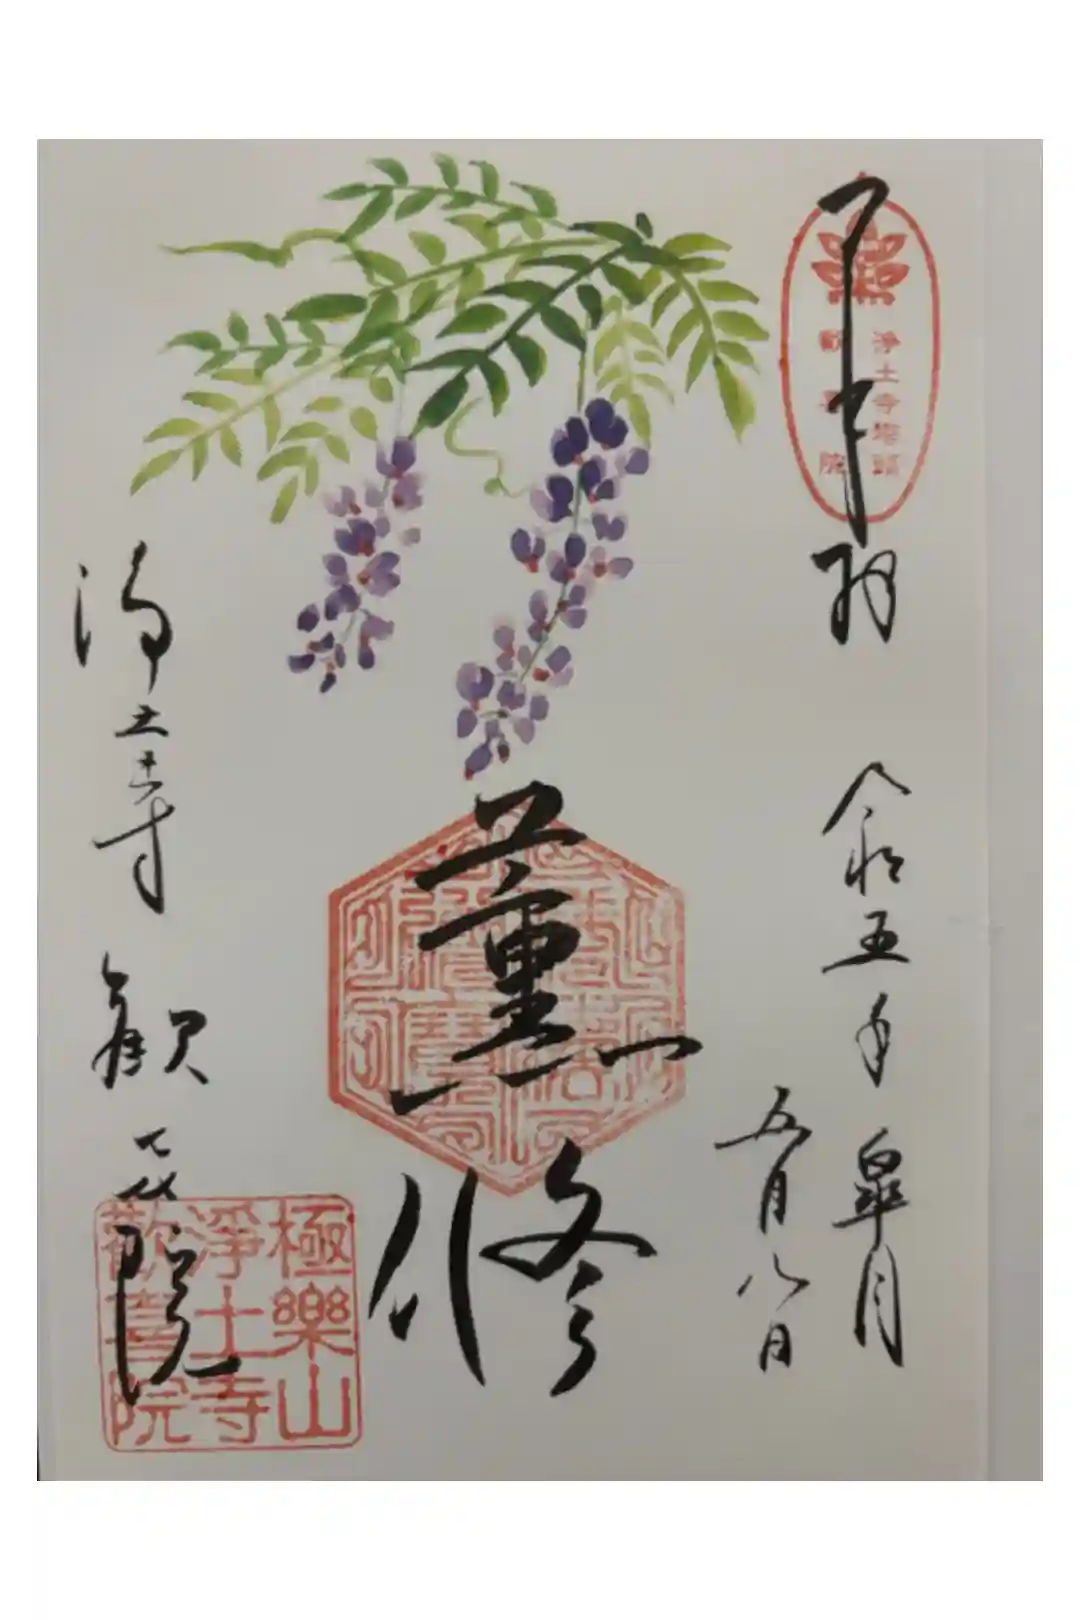 奉拝
浄土寺塔頭
歓喜院
令和五年 皐月
五月八日
薫修
浄土寺 歓喜院
極樂山
淨土寺
歡喜院